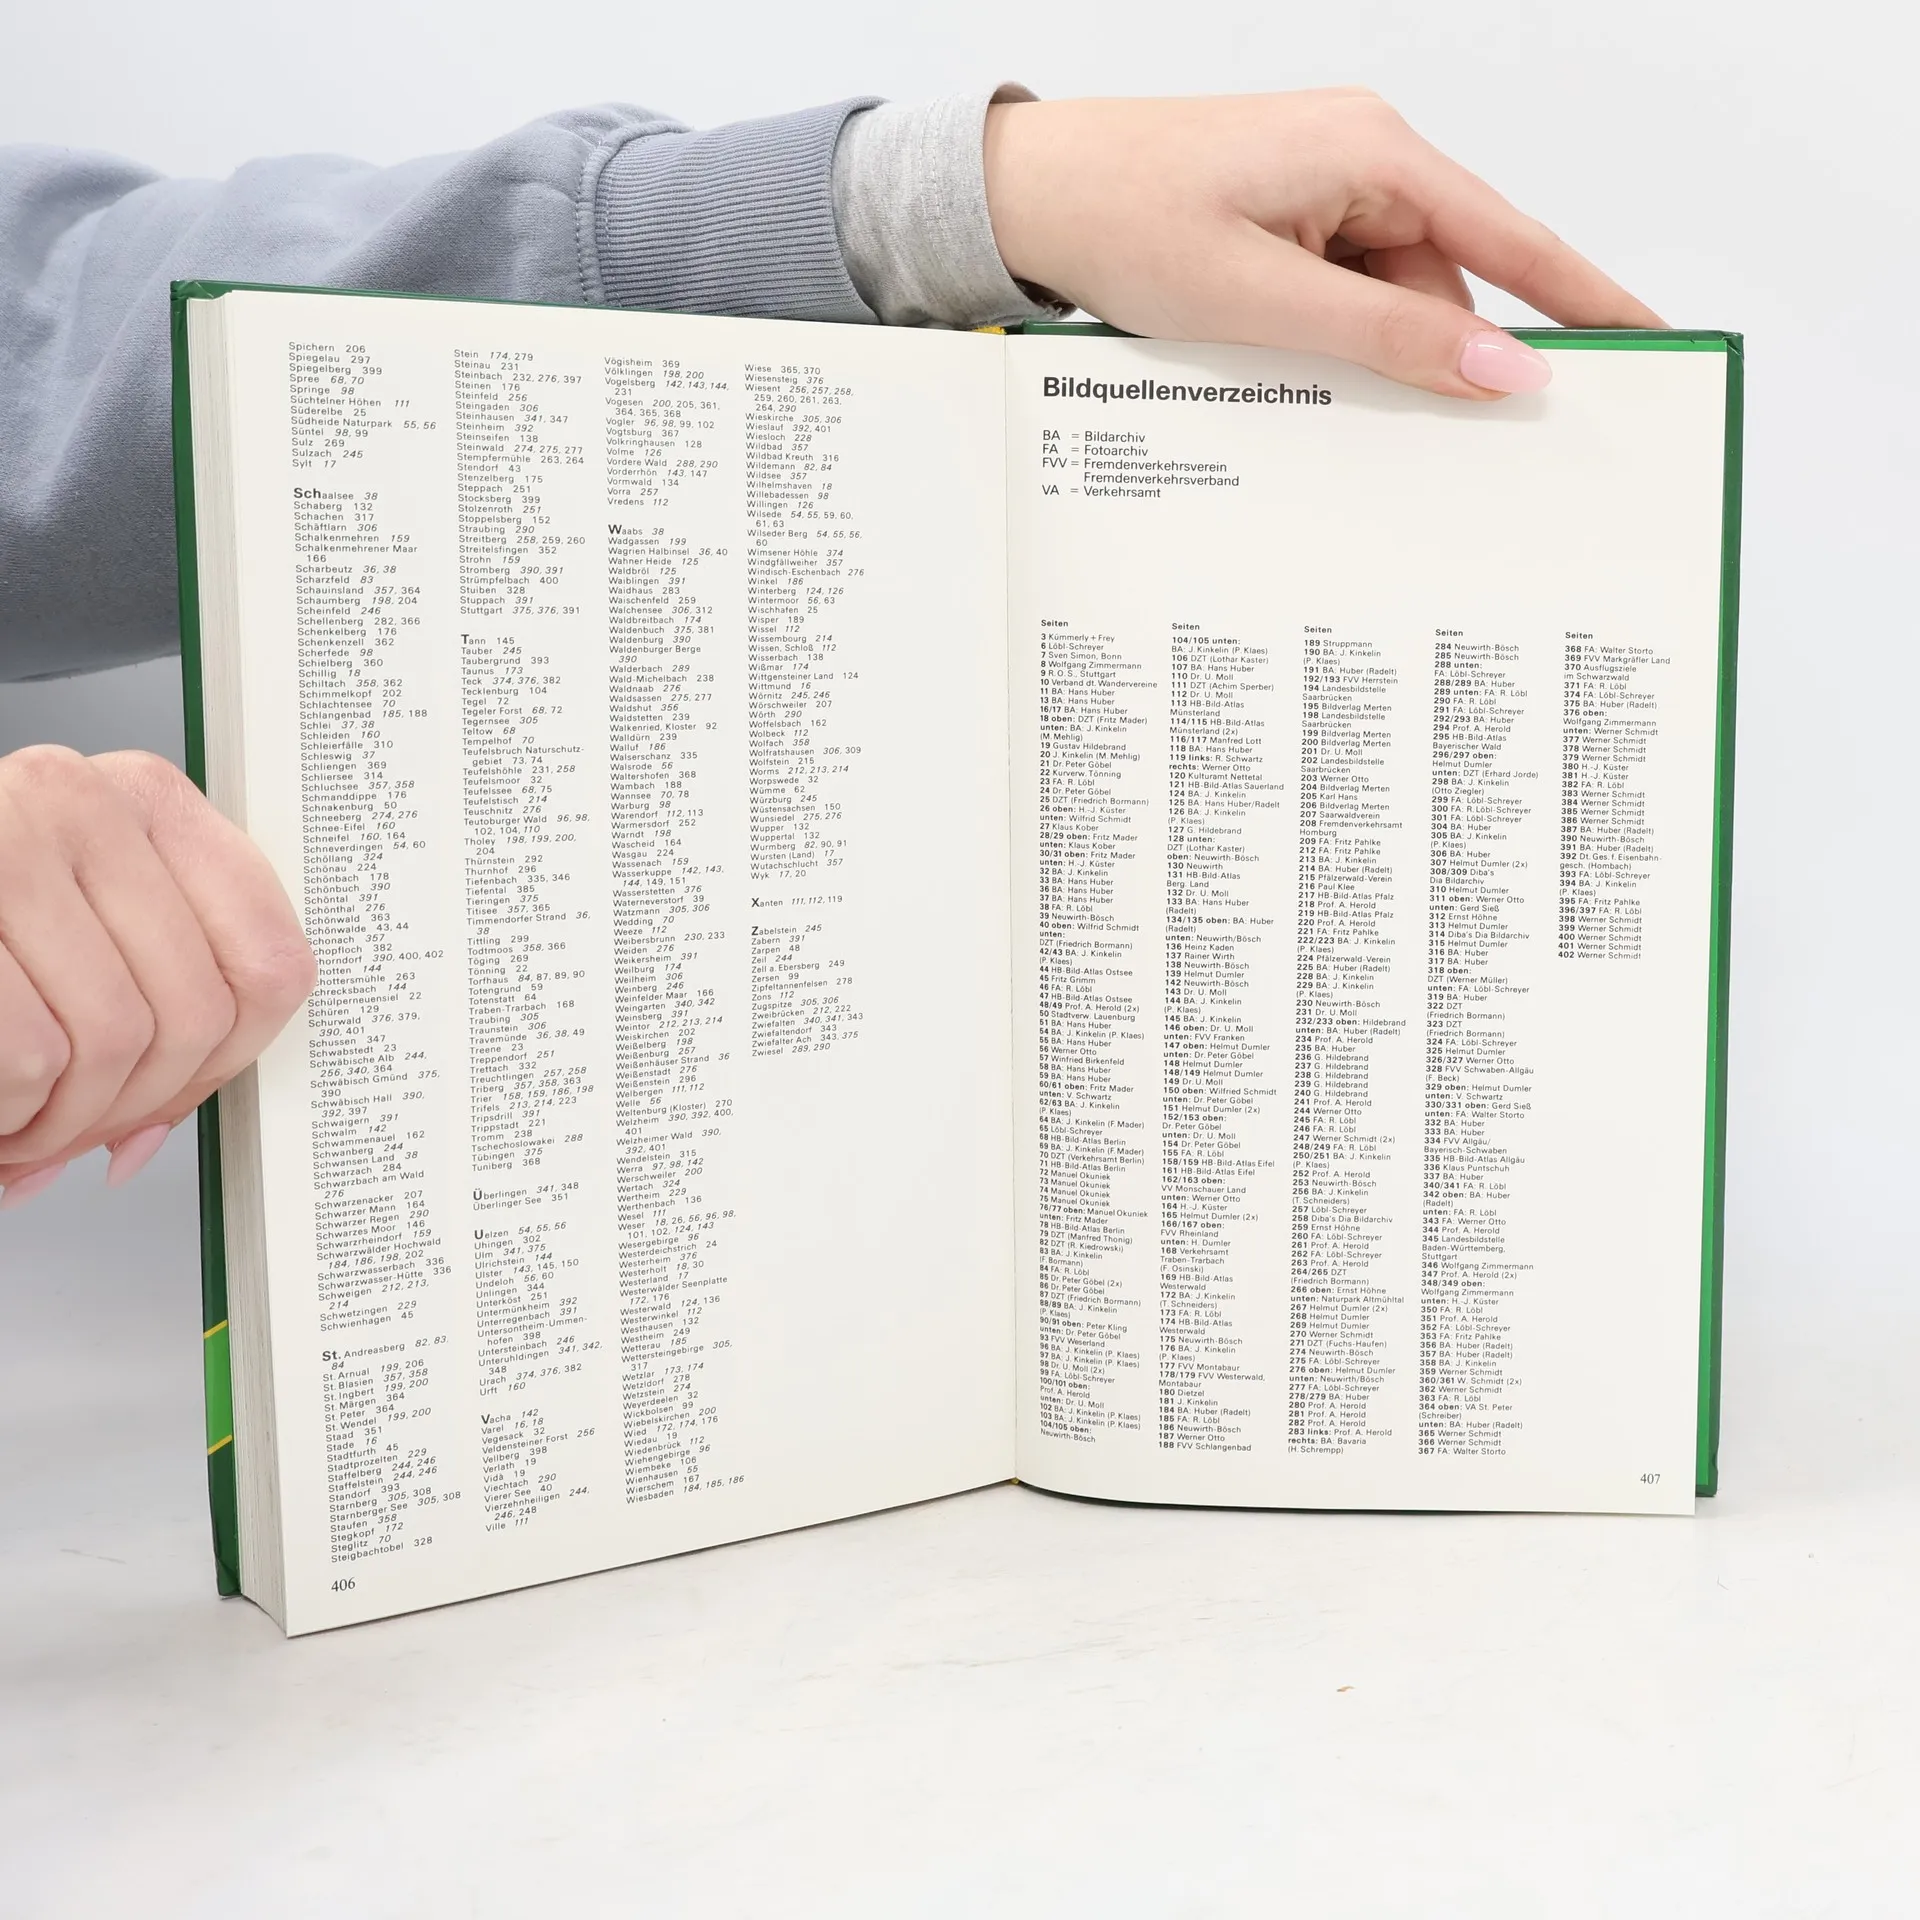 Spichern 206
Spiegelau 297
Spiegelberg 399
Spree 68, 70
Springe 98
Süchtelner Höhen 111
Süderelbe 25
Südheide Naturpark 55, 56
Süntel 98, 99
Sulz 269
Sulzach 245
Sylt 17
Schaalsee 38
Schaberg 132
Schachen 317
Schäftlarn 306
Schalkenmehren 159
Schalkenmehrener Maar
166
Scharbeutz 36, 38
Scharzfeld 83
Schauinsland 357, 364
Schaumberg 198, 204
Scheinfeld 246
Schellenberg 282, 366
Schenkelberg 176
Schenkenzell 362
Scherfede 98
Schielberg 360
Schillig 18
Schiltach 358, 362
Schimmelkopf 202
Schlachtensee 70
Schlangenbad 185, 188
Schlei 37, 38
Schleiden 160
Schleierfälle 310
Schleswig 37
Schliengen 369
Schliersee 314
Schluchsee 357, 358
Schmanddippe 176
Schnakenburg 50
Schneeberg 274, 276
Schnee-Eifel 160
Schneifel 160, 164
Schneverdingen 54, 60
Schöllang 324
Schönau 224
Schönbach 178
Schönbuch 390
Schöntal 391
Schönthal 276
Schönwald 363
Schönwalde 43, 44
Schonach 357
chopfloch 382
chorndorf 390, 400, 402
chotten 144
chottersmühle 263
chrecksbach 144
Schülperneuensiel 22
Schüren 129
Schurwald 376, 379,
390, 401
Schussen 347
Schwabstedt 23
Schwäbische Alb 244,
256, 340, 364
Schwäbisch Gmünd 375,
390
Schwäbisch Hall 390,
392, 397
Schwaigern 391
Schwalm 142
Schwammenauel 162
Schwanberg 244
Schwansen Land 38
Schwarzach 284
Schwarzbach am Wald
276
Schwarzenacker 207
Schwarzer Mann 164
Schwarzer Regen 290
Schwarzes Moor 146
Schwarzrheindorf 159
Schwarzwälder Hochwald
184, 186, 198, 202
Schwarzwasserbach 336
Schwarzwasser-Hütte 336
Schweigen 212, 213,
214
Schwetzingen 229
Schwienhagen 45
St. Andreasberg 82, 83,
84
St. Arnual 199, 206
St. Blasien 357, 358
St. Ingbert 199, 200
St. Märgen 364
St. Peter 364
St. Wendel 199, 200
Staad 351
Stade 16
Stadtfurth 45
Stadtprozelten 229
Staffelberg 244, 246
Staffelstein 244, 246
Standorf 393
Starnberg 305, 308
Starnberger See 305, 308
Staufen 358
Stegkopf 172
Steglitz 70
Steigbachtobel 328
Stein 174, 279
Steinau 231
Steinbach 232, 276, 397
Steinen 176
Steinfeld 256
Steingaden 306
Steinhausen 341, 347
Steinheim 392
Steinseifen 138
Steinwald 274, 275, 277
Stempfermühle 263, 264
Stendorf 43
Stenzelberg 175
Steppach 251
Stocksberg 399
Stolzenroth 251
Stoppelsberg 152
Straubing 290
Streitberg 258, 259, 260
Streitelsfingen 352
Strohn 159
Stromberg 390, 391
Strümpfelbach 400
Stuiben 328
Stuppach 391
Stuttgart 375, 376, 391
Tann 145
Tauber 245
Taubergrund 393
Taunus 173
Teck 374, 376, 382
Tecklenburg 104
Tegel 72
Tegeler Forst 68, 72
Tegernsee 305
Teltow 68
Tempelhof 70
Teufelsbruch Naturschutz-
gebiet 73, 74
Teufelshöhle 231, 258
Teufelsmoor 32
Teufelssee 68, 75
Teufelstisch 214
Teuschnitz 276
Teutoburger Wald 96, 98,
102, 104, 110
Tholey 198, 199, 200,
204
Thürnstein 292
Thurnhof 296
Tiefenbach 335, 346
Tiefental 385
Tieringen 375
Titisee 357, 365
Timmendorfer Strand 36,
38
Tittling 299
Todtmoos 358, 366
Töging 269
Tönning 22
Torfhaus 84, 87, 89, 90
Totengrund 59
Totenstatt 64
Traben-Trarbach 168
Traubing 305
Traunstein 306
Travemünde 36, 38, 49
Treene 23
Treppendorf 251
Trettach 332
Treuchtlingen 257, 258
Triberg 357, 358, 363
Trier 158, 159, 186, 198
Trifels 213, 214, 223
Tripsdrill 391
Trippstadt 221
Tromm 238
Tschechoslowakei 288
Tübingen 375
Tuniberg 368
Überlingen 341, 348
Überlinger See 351
Uelzen 54, 55, 56
Uhingen 302
Ulm 341, 375
Ulrichstein 144
Ulster 143, 145, 150
Undeloh 56, 60
Unlingen 344
Unterköst 251
Untermünkheim 392
Unterregenbach 391
Untersontheim-Ummen-
hofen 398
Untersteinbach 246
Unteruhldingen 341, 342,
348
Urach 374, 376, 382
Urft 160
Vacha 142
Varel 16, 18
Vegesack 32
Veldensteiner Forst 256
Vellberg 398
Verlath 19
Vidå 19
Viechtach 290
Vierer See 40
Vierzehnheiligen 244,
246, 248
Ville 111
Vögisheim 369
Völklingen 198, 200
Vogelsberg 142, 143, 144,
231
Vogesen 200, 205, 361,
364, 365, 368
Vogler 96, 98, 99, 102
Vogtsburg 367
Volkringhausen 128
Volme 126
Vordere Wald 288, 290
Vorderrhön 143, 147
Vormwald 134
Vorra 257
Vredens 112
Waabs 38
Wadgassen 199
Wagrien Halbinsel 36, 40
Wahner Heide 125
Waldbröl 125
Waiblingen 391
Waidhaus 283
Waischenfeld 259
Walchensee 306, 312
Waldbreitbach 174
Waldenbuch 375, 381
Waldenburg 390
Waldenburger Berge
390
Walderbach 289
Wald-Michelbach 238
Waldnaab 276
Waldsassen 275, 277
Waldshut 356
Waldstetten 239
Walkenried, Kloster 92
Walldürn 239
Walluf 186
Walserschanz 335
Walsrode 56
Waltershofen 368
Wambach 188
Wannsee 70, 78
Warburg 98
Warendorf 112, 113
Warmersdorf 252
Warndt 198
Wascheid 164
Wasgau 224
Wassenach 159
Wasserkuppe 142, 143,
144, 149, 151
Wasserstetten 376
Waterneverstorf 39
Watzmann 305, 306
Wedding 70
Weeze 112
Weibersbrunn 230, 233
Weiden 276
Weikersheim 391
Weilburg 174
Weilheim 306
Weinberg 246
Weinfelder Maar 166
Weingarten 340, 342
Weinsberg 391
Weintor 212, 213, 214
Weiskirchen 202
Weißelberg 198
Weißenburg 257
Weißenhäuser Strand 36
Weißenstadt 276
Weißenstein 296
Welbergen 111, 112
Welle 56
Weltenburg (Kloster) 270
Welzheim 390, 392, 400,
401
Welzheimer Wald 390,
392, 401
Wendelstein 315
Werra 97, 98, 142
Werschweiler 200
Wertach 324
Wertheim 229
Werthenbach 136
Wesel 111
Weser 18, 26, 56, 96, 98,
101, 102, 124, 143
Wesergebirge 96
Westerdeichstrich 24
Westerheim 376
Westerholt 18, 30
Westerland 17
Westerwälder Seenplatte
172, 176
Westerwald 124, 136
Westerwinkel 112
Westhausen 132
Westheim 249
Wetterau 185
Wettersteingebirge 305,
317
Wetzlar 173, 174
Wetzldorf 278
Wetzstein 274
Weyerdeelen 32
Wickbolsen 99
Wiebelskirchen 200
Wied 172, 174, 176
Wiedau 19
Wiedenbrück 112
Wiehengebirge 96
Wiembeke 106
Wienhausen 55
Wierschem 167
Wiesbaden 184, 185, 186
Wiese 365, 370
Wiesensteig 376
Wiesent 256, 257, 258,
259, 260, 261, 263,
264, 290
Wieskirche 305, 306
Wieslauf 392, 401
Wiesloch 228
Wildbad 357
Wildbad Kreuth 316
Wildemann 82, 84
Wildsee 357
Wilhelmshaven 18
Willebadessen 98
Willingen 126
Wilsede 54, 55, 59, 60,
61, 63
Wilseder Berg 54, 55, 56,
60
Wimsener Höhle 374
Windgfällweiher 357
Windisch-Eschenbach 276
Winkel 186
Winterberg 124, 126
Wintermoor 56, 63
Wischhafen 25
Wisper 189
Wissel 112
Wissembourg 214
Wissen, Schloß 112
Wisserbach 138
Wißmar 174
Wittgensteiner Land 124
Wittmund 16
Wörnitz 245, 246
Wörschweiler 207
Wörth 290
Woffelsbach 162
Wolbeck 112
Wolfach 358
Wolfratshausen 306, 309
Wolfstein 215
Worms 212, 213, 214
Worpswede 32
Wümme 62
Würzburg 245
Wüstensachsen 150
Wunsiedel 275, 276
Wupper 132
Wuppertal 132
Wurmberg 82, 90, 91
Wursten (Land) 17
Wutachschlucht 357
Wyk 17, 20
Xanten 111, 112, 119
Zabelstein 245
Zabern 391
Zarpen 48
Zeil 244
Zell a. Ebersberg 249
Zersen 99
Zipfeltannenfelsen 278
Zons 112
Zugspitze 305, 306
Zweibrücken 212, 222
Zwiefalten 340, 341, 343
Zwiefaltendorf 343
Zwiefalter Ach 343, 375
Zwiesel 289, 290
406
Bildquellenverzeichnis
BA = Bildarchiv
FA = Fotoarchiv
FVV = Fremdenverkehrsverein
Fremdenverkehrsverband
VA = Verkehrsamt
Seiten
3 Kümmerly + Frey
6 Löbl-Schreyer
7 Sven Simon, Bonn
8 Wolfgang Zimmermann
9 R.O.S., Stuttgart
10 Verband dt. Wandervereine
11 BA: Hans Huber
13 BA: Hans Huber
16/17 BA: Hans Huber
18 oben: DZT (Fritz Mader)
unten: BA: J. Kinkelin
(M. Mehlig)
19 Gustav Hildebrand
20 J. Kinkelin (M. Mehlig)
21 Dr. Peter Göbel
22 Kurverw. Tönning
23 FA: R. Löbl
24 Dr. Peter Göbel
25 DZT (Friedrich Bormann)
26 oben: H.-J. Küster
unten: Wilfrid Schmidt
27 Klaus Kober
28/29 oben: Fritz Mader
unten: Klaus Kober
30/31 oben: Fritz Mader
unten: H.-J. Küster
32 BA: J. Kinkelin
33 BA: Hans Huber
36 BA: Hans Huber
37 BA: Hans Huber
38 FA: R. Löbl
39 Neuwirth-Bösch
40 oben: Wilfrid Schmidt
unten:
DZT (Friedrich Bormann)
42/43 BA: J. Kinkelin
(P. Klaes)
44 HB-Bild-Atlas Ostsee
45 Fritz Grimm
46 FA: R. Löbl
47 HB-Bild-Atlas Ostsee
48/49 Prof. A. Herold (2x)
50 Stadtverw. Lauenburg
51 BA: Hans Huber
54 BA: J. Kinkelin (P. Klaes)
55 BA: Hans Huber
56 Werner Otto
57 Winfried Birkenfeld
58 BA: Hans Huber
59 BA: Hans Huber
60/61 oben: Fritz Mader
unten: V. Schwartz
62/63 BA: J. Kinkelin
(P. Klaes)
64 BA: J. Kinkelin (F. Mader)
65 Löbl-Schreyer
68 HB-Bild-Atlas Berlin
69 BA: J. Kinkelin (F. Mader)
70 DZT (Verkehrsamt Berlin)
71 HB-Bild-Atlas Berlin
72 Manuel Okuniek
73 Manuel Okuniek
74 Manuel Okuniek
75 Manuel Okuniek
76/77 oben: Manuel Okuniek
unten: Fritz Mader
78 HB-Bild-Atlas Berlin
79 DZT (Manfred Thonig)
82 DZT (R. Kiedrowski)
83 BA: J. Kinkelin
(F. Bormann)
84 FA: R. Löbl
85 Dr. Peter Göbel (2x)
86 Dr. Peter Göbel
87 DZT (Friedrich Bormann)
88/89 BA: J. Kinkelin
(P. Klaes)
90/91 oben: Peter Kling
unten: Dr. Peter Göbel
93 FVV Weserland
96 BA: J. Kinkelin (P. Klaes)
97 BA: J. Kinkelin (P. Klaes)
98 Dr. U. Moll (2x)
99 FA: Löbl-Schreyer
100/101 oben:
Prof. A. Herold
unten: Dr. U. Moll
102 BA: J. Kinkelin (P. Klaes)
103 BA: J. Kinkelin (P. Klaes)
104/105 oben:
Neuwirth-Bösch
104/105 unten:
BA: J. Kinkelin (P. Klaes)
106 DZT (Lothar Kaster)
107 BA: Hans Huber
110 Dr. U. Moll
111 DZT (Achim Sperber)
112 Dr. U. Moll
113 HB-Bild-Atlas
Münsterland
114/115 HB-Bild-Atlas
Münsterland (2x)
116/117 Manfred Lott
118 BA: Hans Huber
119 links: R. Schwartz
rechts: Werner Otto
120 Kulturamt Nettetal
121 HB-Bild-Atlas Sauerland
124 BA: J. Kinkelin
125 BA: Hans Huber/Radelt
126 BA: J. Kinkelin
(P. Klaes)
127 G. Hildebrand
128 unten:
DZT (Lothar Kaster)
oben: Neuwirth-Bösch
130 Neuwirth
131 HB-Bild-Atlas
Berg. Land
132 Dr. U. Moll
133 BA: Hans Huber
(Radelt)
134/135 oben: BA: Huber
(Radelt)
unten: Neuwirth/Bösch
136 Heinz Kaden
137 Rainer Wirth
138 Neuwirth-Bösch
139 Helmut Dumler
142 Neuwirth-Bösch
143 Dr. U. Moll
144 BA: J. Kinkelin
(P. Klaes)
145 BA: J. Kinkelin
146 oben: Dr. U. Moll
unten: FVV Franken
147 oben: Helmut Dumler
unten: Dr. Peter Göbel
148 Helmut Dumler
148/149 Helmut Dumler
149 Dr. U. Moll
150 oben: Wilfried Schmidt
unten: Dr. Peter Göbel
151 Helmut Dumler (2x)
152/153 oben:
Dr. Peter Göbel
unten: Dr. U. Moll
154 Dr. Peter Göbel
155 FA: R. Löbl
158/159 HB-Bild-Atlas Eifel
161 HB-Bild-Atlas Eifel
162/163 oben:
VV Monschauer Land
unten: Werner Otto
164 H.-J. Küster
165 Helmut Dumler (2x)
166/167 oben:
FVV Rheinland
unten: H. Dumler
168 Verkehrsamt
Traben-Trarbach
(F. Osinski)
169 HB-Bild-Atlas
Westerwald
172 BA: J. Kinkelin
(T. Schneiders)
173 FA: R. Löbl
174 HB-Bild-Atlas
Westerwald
175 Neuwirth-Bösch
176 BA: J. Kinkelin
(P. Klaes)
177 FVV Montabaur
178/179 FVV Westerwald,
Montabaur
180 Dietzel
181 J. Kinkelin
184 BA: Huber (Radelt)
185 FA: R. Löbl
186 Neuwirth-Bösch
187 Werner Otto
188 FVV Schlangenbad
Seiten
189 Struppmann
190 BA: J. Kinkelin
(P. Klaes)
191 BA: Huber (Radelt)
192/193 FVV Herrstein
194 Landesbildstelle
Saarbrücken
195 Bildverlag Merten
198 Landesbildstelle
Saarbrücken
199 Bildverlag Merten
200 Bildverlag Merten
201 Dr. U. Moll
202 Landesbildstelle
Saarbrücken
203 Werner Otto
204 Bildverlag Merten
205 Karl Hans
206 Bildverlag Merten
207 Saarwaldverein
208 Fremdenverkehrsamt
Homburg
209 FA: Fritz Pahlke
212 FA: Fritz Pahlke
213 BA: J. Kinkelin
214 BA: Huber (Radelt)
215 Pfälzerwald-Verein
216 Paul Klee
217 HB-Bild-Atlas Pfalz
218 Prof. A. Herold
219 HB-Bild-Atlas Pfalz
220 Prof. A. Herold
221 FA: Fritz Pahlke
222/223 BA: J. Kinkelin
(P. Klaes)
224 Pfälzerwald-Verein
225 BA: Huber (Radelt)
228 BA: J. Kinkelin
229 BA: J. Kinkelin
(P. Klaes)
230 Neuwirth-Bösch
231 Dr. U. Moll
232/233 oben: Hildebrand
unten: BA: Huber (Radelt)
234 Prof. A. Herold
235 BA: Huber
236 G. Hildebrand
237 G. Hildebrand
238 G. Hildebrand
239 G. Hildebrand
240 G. Hildebrand
241 Prof. A. Herold
244 Werner Otto
245 FA: R. Löbl
246 FA: R. Löbl
247 Werner Schmidt (2x)
248/249 FA: R. Löbl
250/251 BA: J. Kinkelin
(P. Klaes)
252 Prof. A. Herold
253 Neuwirth-Bösch
256 BA: J. Kinkelin
(T. Schneiders)
257 Löbl-Schreyer
258 Diba's Dia Bildarchiv
259 Ernst Höhne
260 FA: Löbl-Schreyer
261 Prof. A. Herold
262 FA: Löbl-Schreyer
263 Prof. A. Herold
264/265 DZT
(Friedrich Bormann)
266 oben: Ernst Höhne
unten: Naturpark Altmühltal
267 Helmut Dumler (2x)
268 Helmut Dumler
269 Helmut Dumler
270 Werner Schmidt
271 DZT (Fuchs-Haufen)
274 Neuwirth-Bösch
275 FA: Löbl-Schreyer
276 oben: Helmut Dumler
unten: Neuwirth/Bösch
277 FA: Löbl-Schreyer
278/279 BA: Huber
280 Prof. A. Herold
281 Prof. A. Herold
282 Prof. A. Herold
283 links: Prof. A. Herold
rechts: BA: Bavaria
(H. Schrempp)
Seiten
284 Neuwirth-Bösch
285 Neuwirth-Bösch
288 unten:
FA: Löbl-Schreyer
288/289 BA: Huber
289 unten: FA: R. Löbl
290 FA: R. Löbl
291 FA: Löbl-Schreyer
292/293 BA: Huber
294 Prof. A. Herold
295 HB-Bild-Atlas
Bayerischer Wald
296/297 oben:
Helmut Dumler
unten: DZT (Erhard Jorde)
298 BA: J. Kinkelin
(Otto Ziegler)
299 FA: Löbl-Schreyer
300 FA: R. Löbl-Schreyer
301 FA: Löbl-Schreyer
304 BA: Huber
305 BA: J. Kinkelin
(P. Klaes)
306 BA: Huber
307 Helmut Dumler (2x)
308/309 Diba's
Dia Bildarchiv
310 Helmut Dumler
311 oben: Werner Otto
unten: Gerd Sieß
312 Ernst Höhne
313 Helmut Dumler
314 Diba's Dia Bildarchiv
315 Helmut Dumler
316 BA: Huber
317 BA: Huber
318 oben:
DZT (Werner Müller)
unten: FA: Löbl-Schreyer
319 BA: Huber
322 DZT
(Friedrich Bormann)
323 DZT
(Friedrich Bormann)
324 FA: Löbl-Schreyer
325 Helmut Dumler
326/327 Werner Otto
328 FVV Schwaben-Allgäu
(F. Beck)
329 oben: Helmut Dumler
unten: V. Schwartz
330/331 oben: Gerd Sieß
unten: FA: Walter Storto
332 BA: Huber
333 BA: Huber
334 FVV Allgäu/
Bayerisch-Schwaben
335 HB-Bild-Atlas Allgäu
336 Klaus Puntschuh
337 BA: Huber
340/341 FA: R. Löbl
342 oben: BA: Huber
(Radelt)
unten: FA: R. Löbl
343 FA: Werner Otto
344 Prof. A. Herold
345 Landesbildstelle
Baden-Württemberg,
Stuttgart
346 Wolfgang Zimmermann
347 Prof. A. Herold (2x)
348/349 oben:
Wolfgang Zimmermann
unten: H.-J. Küster
350 FA: R. Löbl
351 Prof. A. Herold
352 FA: Löbl-Schreyer
353 FA: Fritz Pahlke
356 BA: Huber (Radelt)
357 BA: Huber (Radelt)
358 BA: J. Kinkelin
359 Werner Schmidt
360/361 W. Schmidt (2x)
362 Werner Schmidt
363 FA: R. Löbl
364 oben: VA St. Peter
(Schreiber)
unten: BA: Huber (Radelt)
365 Werner Schmidt
366 Werner Schmidt
367 FA: Walter Storto
Seiten
368 FA: Walter Storto
369 FVV Markgräfler Land
370 Ausflugsziele
im Schwarzwald
371 FA: R. Löbl
374 FA: Löbl-Schreyer
375 BA: Huber (Radelt)
376 oben:
Wolfgang Zimmermann
unten: Werner Schmidt
377 Werner Schmidt
378 Werner Schmidt
379 Werner Schmidt
380 H.-J. Küster
381 H.-J. Küster
382 FA: R. Löbl
383 Werner Schmidt
384 Werner Schmidt
385 Werner Schmidt
386 Werner Schmidt
387 BA: Huber (Radelt)
390 Neuwirth-Bösch
391 BA: Huber (Radelt)
392 Dt. Ges. f. Eisenbahn-
gesch. (Hombach)
393 FA: Löbl-Schreyer
394 BA: J. Kinkelin
(P. Klaes)
395 FA: Fritz Pahlke
396/397 FA: R. Löbl
398 Werner Schmidt
399 Werner Schmidt
400 Werner Schmidt
401 Werner Schmidt
402 Werner Schmidt
407